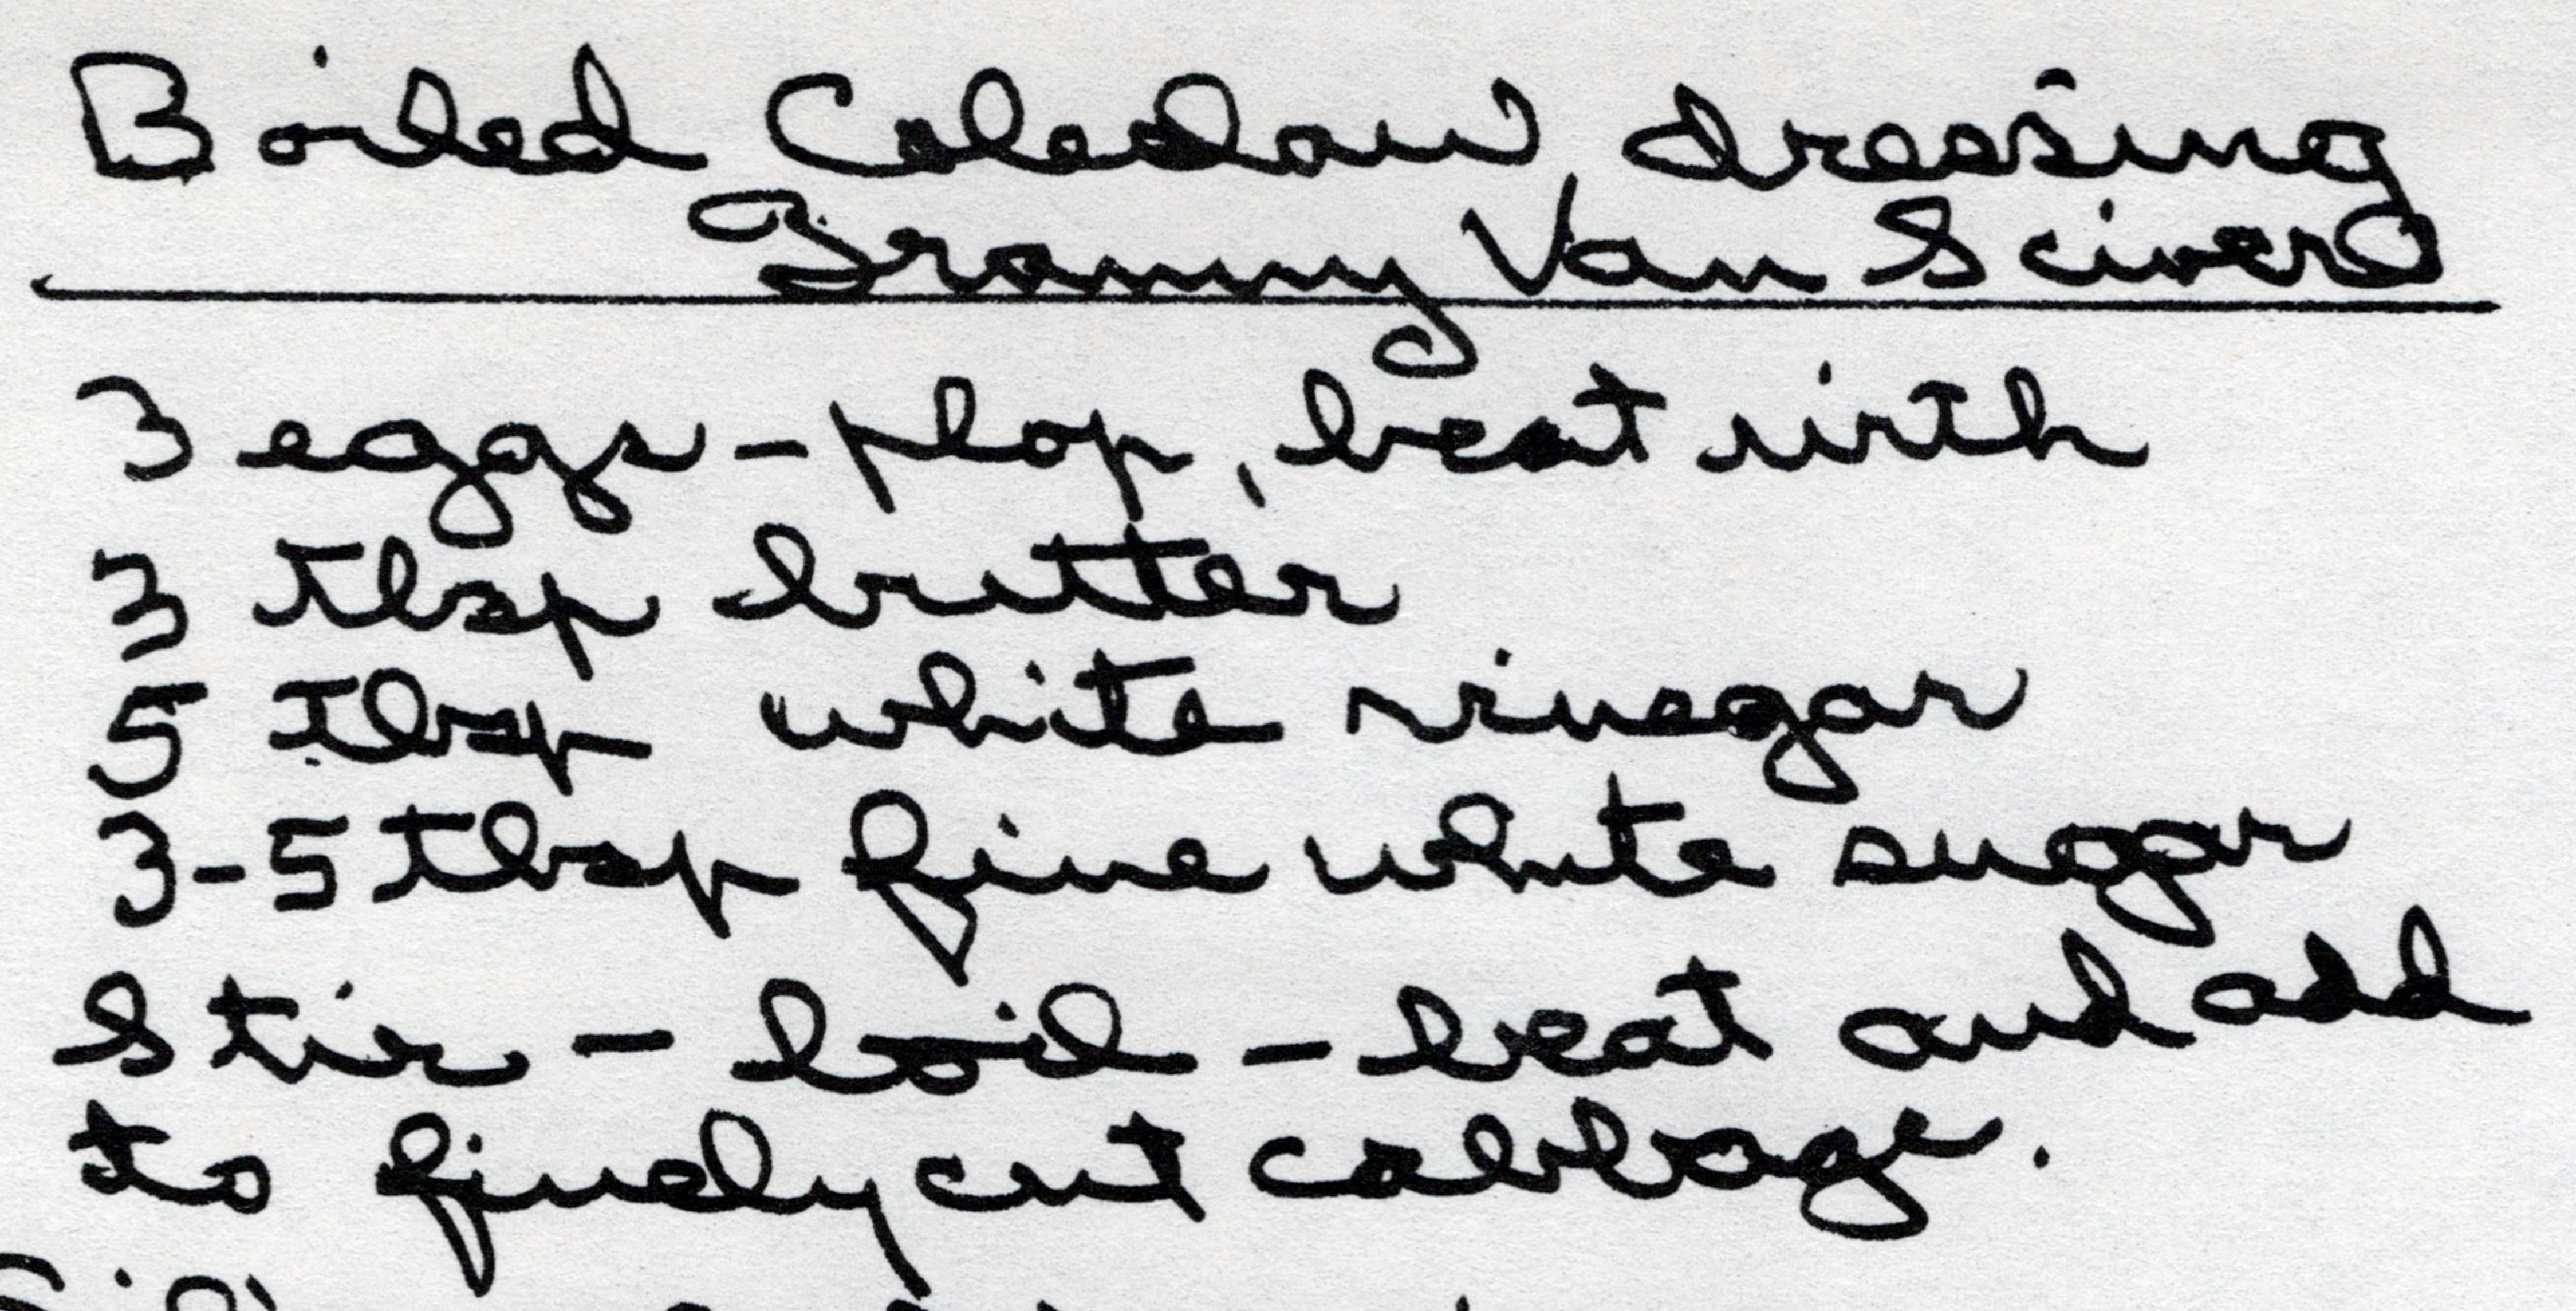 Boiled Coleslaw dressing
Grammy Van Sciver
3 eggs - plop, beat with
3 tbsp butter
5 tbsp white vinegar
3-5 tbsp fine white sugar
Stir - boil - beat and add
to finely cut cabbage.